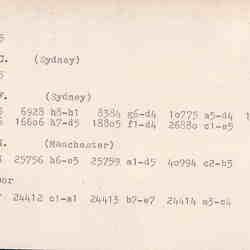 C. (Sydney)
F. (Sydney)
6928 h8-h1 8384 g6-d4 10775 a5-d4
16606 h7-d5 18805 f1-d4 26880 c1-e5
(Manchester)
25756 h6-c3 25759 a1-d5 40994 c2-h5
24412 c1-a1 24413 b7-e7 24414 a3-c4